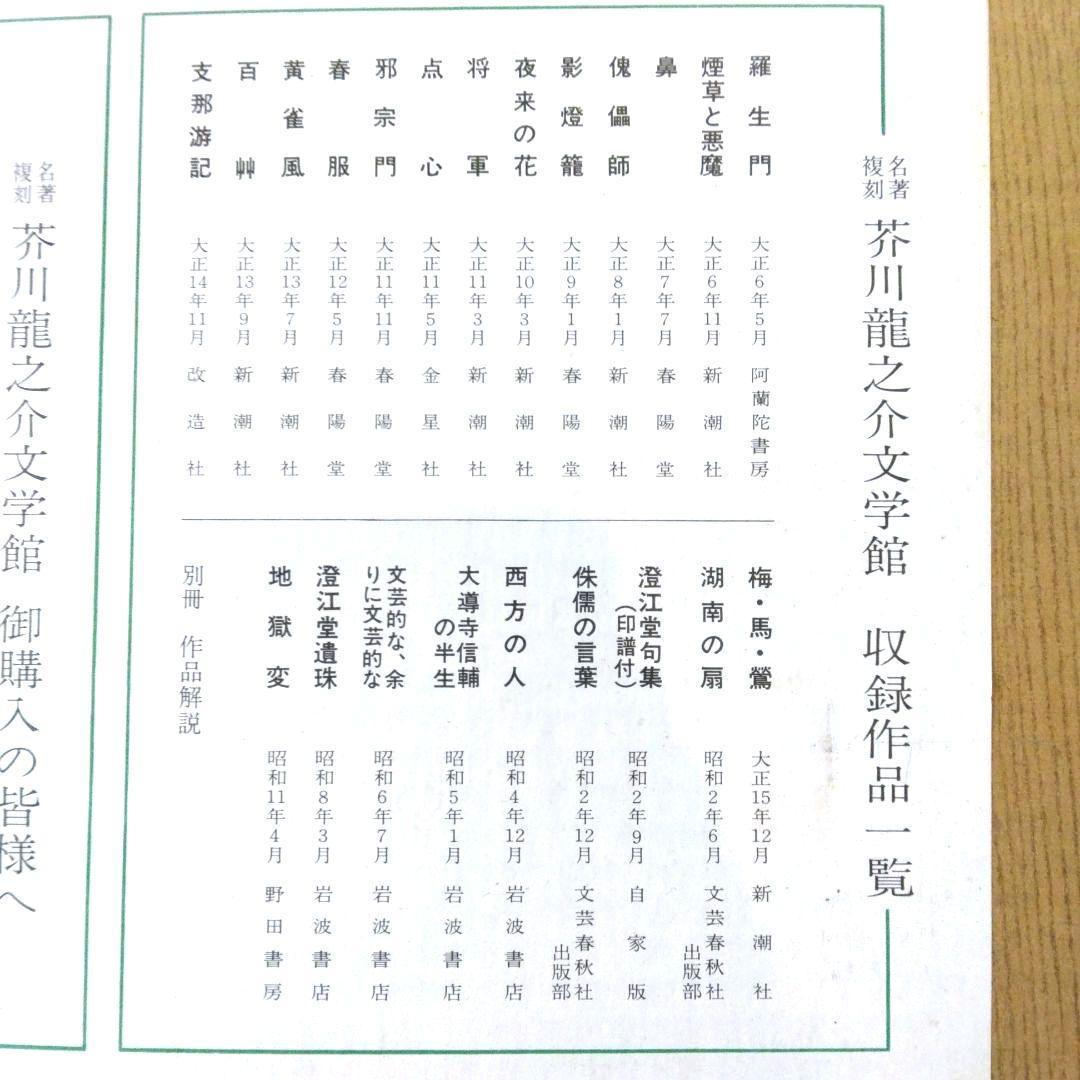 名著複刻 芥川龍之介文学館 収録作品一覧
羅生門 大正6年5月 阿蘭陀書房
煙草と悪魔 大正6年11月 新潮社
鼻 大正7年7月 春陽堂
傀儡師 大正8年1月 新潮社
影燈籠 大正9年1月 春陽堂
夜来の花 大正10年3月 新潮社
将軍 大正11年3月 新潮社
点心 大正11年5月 金星社
邪宗門 大正11年11月 春陽堂
春服 大正12年5月 春陽堂
黄雀風 大正13年7月 新潮社
百艸 大正13年9月 新潮社
支那游記 大正14年11月 改造社
梅・馬・鶯 大正15年12月 新潮社
湖南の扇 昭和2年6月 文芸春秋社出版部
澄江堂句集(印譜付) 昭和2年9月 自家版
侏儒の言葉 昭和2年12月 文芸春秋社出版部
西方の人 昭和4年12月 岩波書店
大導寺信輔の半生 昭和5年1月 岩波書店
文芸的な、余りに文芸的な 昭和6年7月 岩波書店
澄江堂遺珠 昭和8年3月 岩波書店
地獄変 昭和11年4月 野田書房
別冊 作品解説
名著複刻 芥川龍之介文学館 御購入の皆様へ